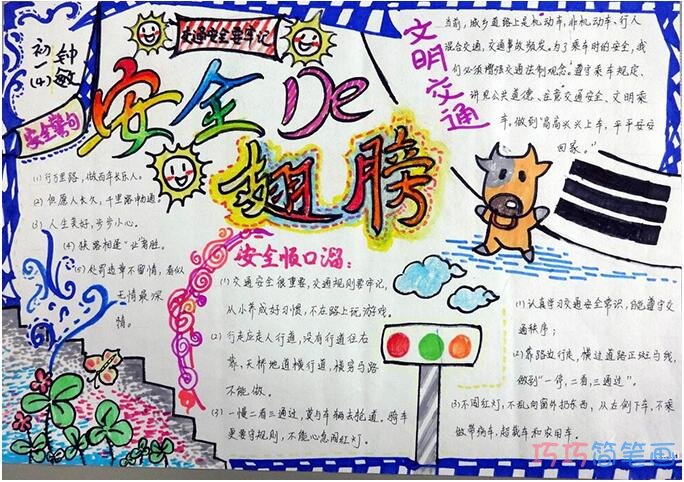 初一(4)
钟敏
交通安全要牢记
安全De
翅膀
文明交通
当前,城乡道路上是机动车,非机动车,行人
混合交通,交通事故频发。为了乘时的安全,我
们必须增强交通法制观念。遵守乘车规定、
讲究公共道德、注意交通安全、文明乘
车。做到“高高兴兴上车,平平安安
回家。”
安全警句
(1)行万里路,做百年长乐人。
(2)但愿人长久,千里路畅通。
(3)人生美好,步步小心。
(4)狭路相逢“让”者胜。
(5)处罚违章不留情,看似
无情最深
情。
安全顺口溜:
(1)交通安全很重要,交通规则要牢记,
从小养成好习惯,不在路上玩游戏。
(2)行走应走人行道,没有行道往右
靠,天桥地道横行道,横穿马路
不能做。
(3)一慢二看三通过,莫与车辆去抢道,骑车
更要守规则,不能心急闯红灯。
(1)认真学习交通安全常识,自觉遵守交
通秩序;
(2)靠路边行走,横过道路正斑马线,
做到“一停,二看,三通过”。
(3)不闯红灯,不乱向窗外扔东西,从右侧下车,不乘
做带病车,超载车和农用车。
巧巧简笔画